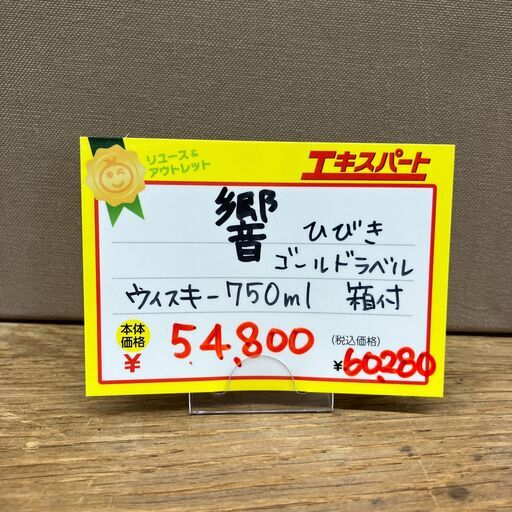 リユース&
アウトレット
エキスパート
響 ひびき
ゴールドラベル
ウィスキー750ml 箱付
本体
価格
¥54,800
(税込価格)
¥60,280